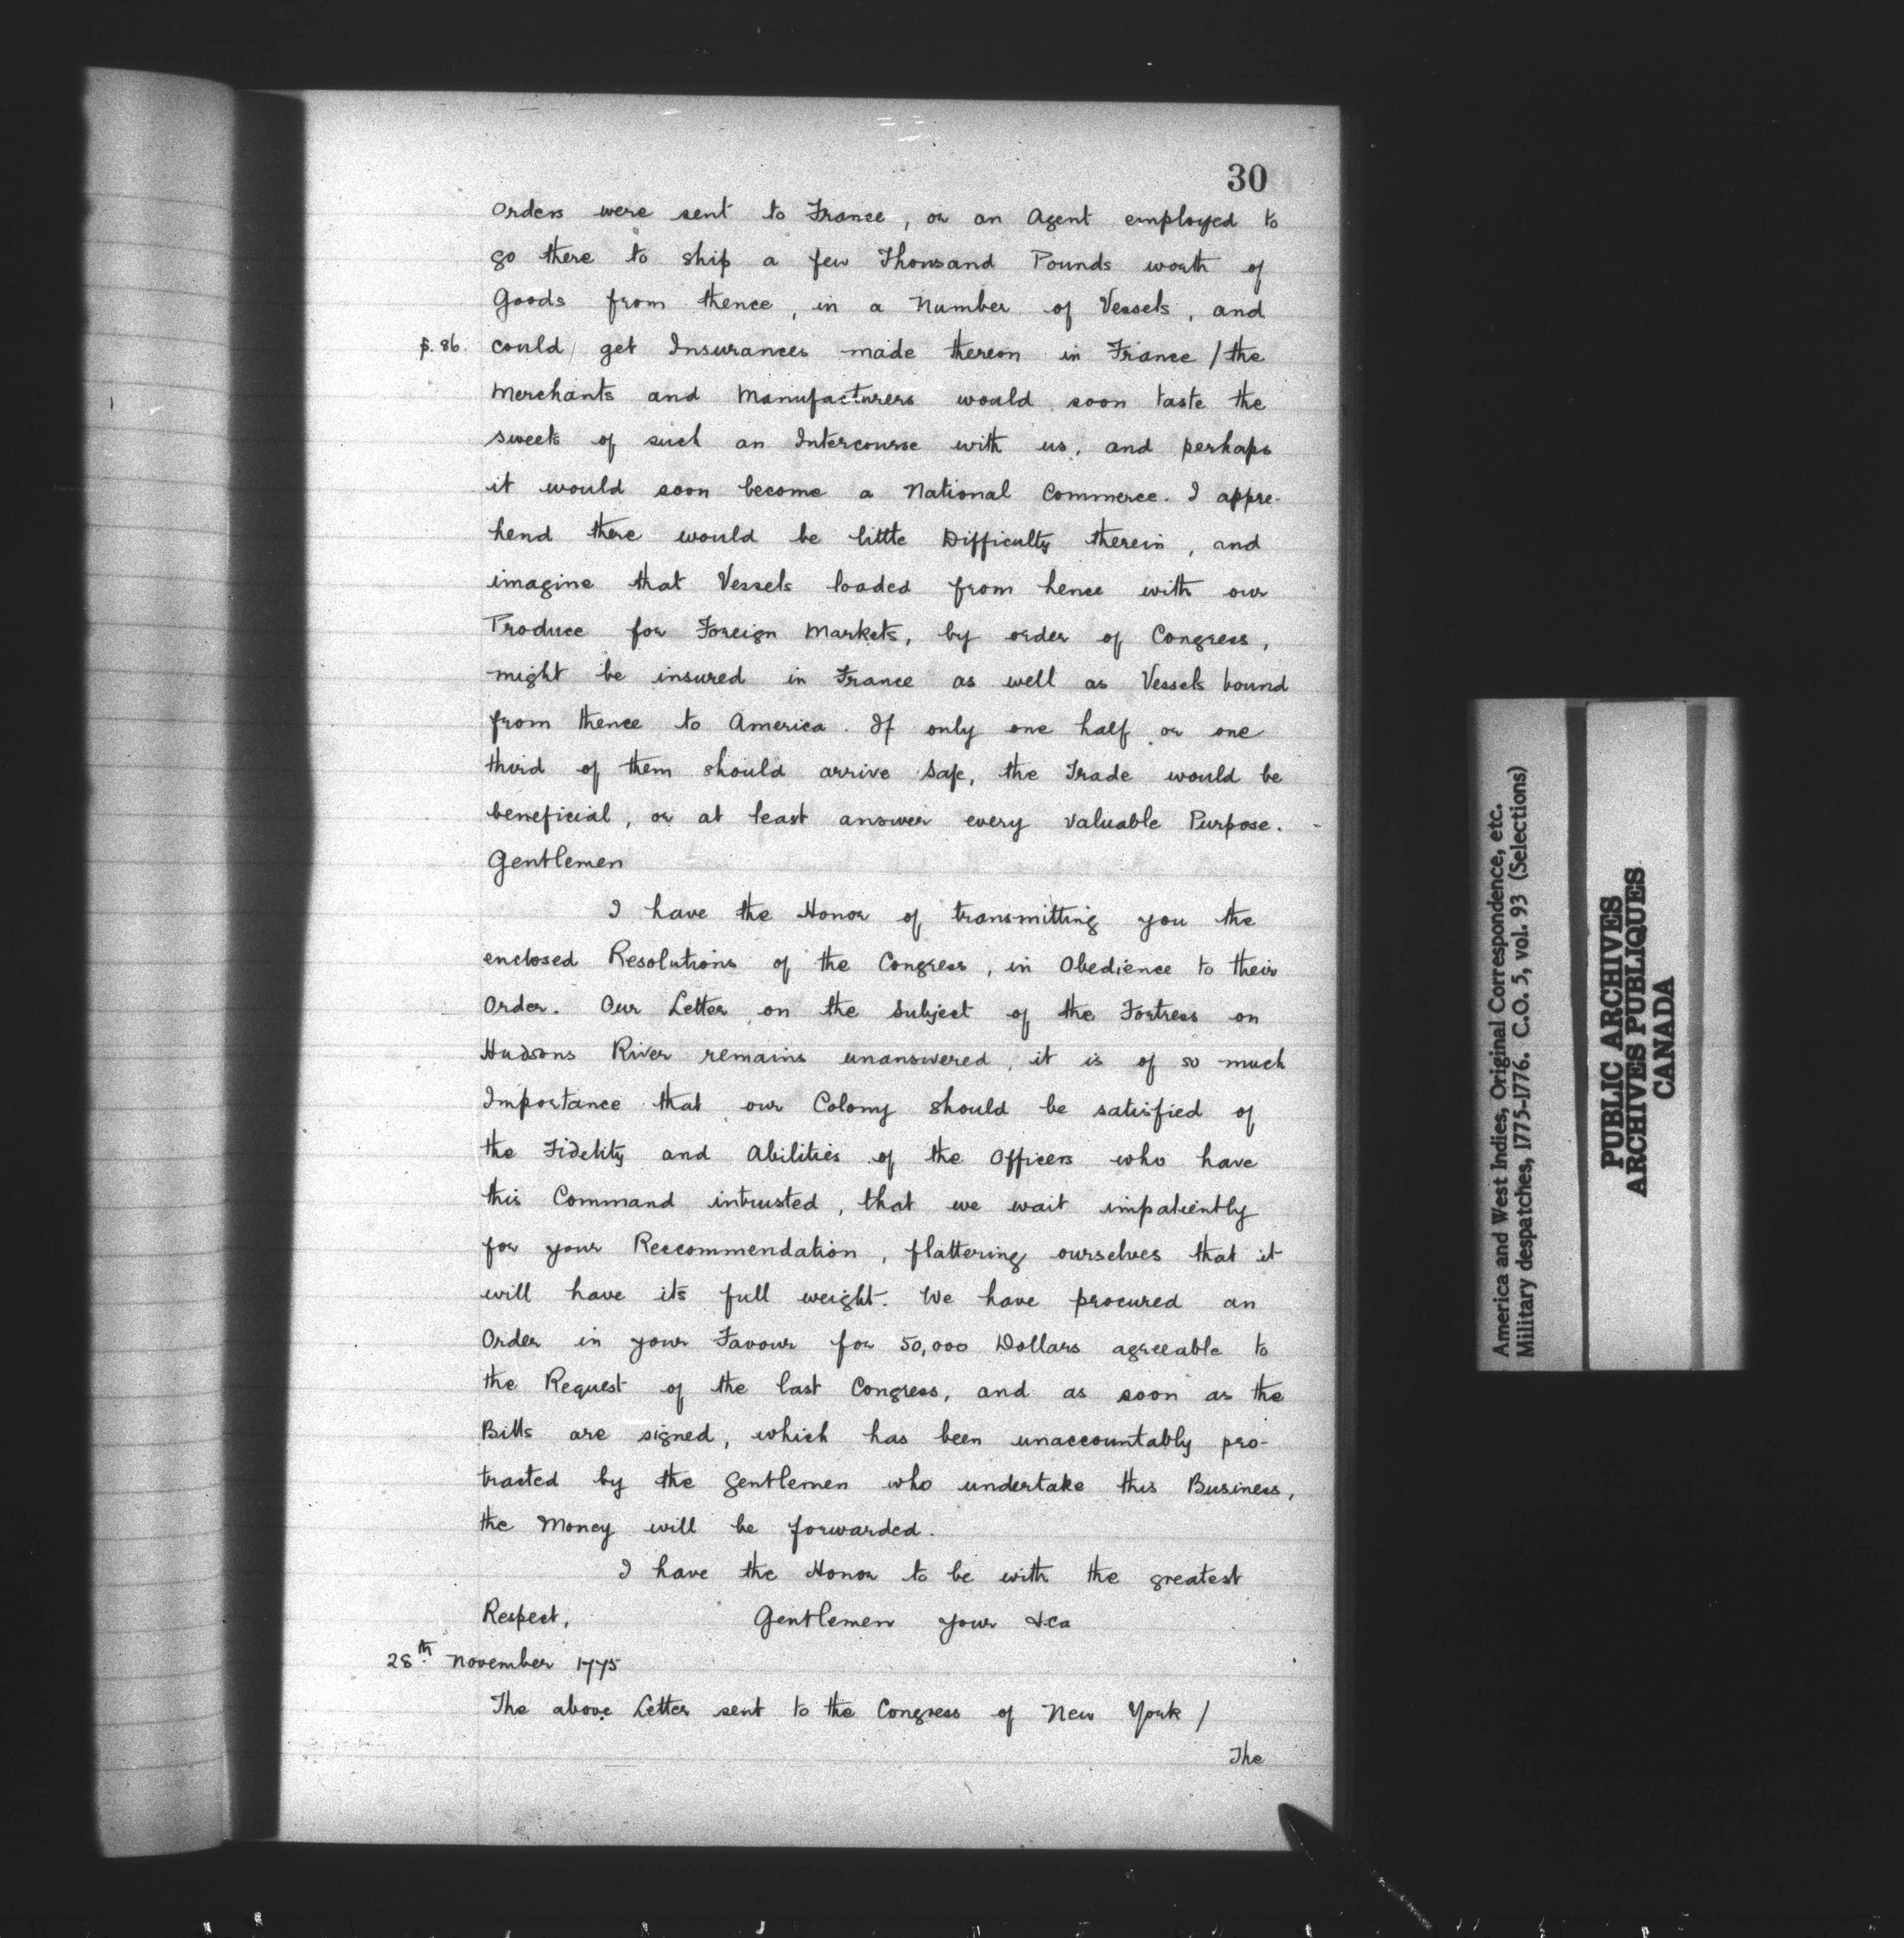 30
Orders were sent to France, or an Agent employed to
go there to ship a few Thousand Pounds worth of
Goods from thence, in a Number of Vessels, and
p. 86. could get Insurances made thereon in France / the
Merchants and Manufacturers would soon taste the
sweets of such an Intercourse with us, and perhaps
it would soon become a National Commerce. I appre-
hend there would be little Difficulty therein, and
imagine that Vessels loaded from hence with our
Produce for Foreign Markets, by order of Congress,
might be insured in France as well as Vessels bound
from thence to America. If only one half or one
third of them should arrive Safe, the Trade would be
beneficial, or at least answer every valuable Purpose. -
Gentlemen
I have the Honor of transmitting you the
enclosed Resolutions of the Congress, in Obedience to their
Order. Our Letter on the Subject of the Fortress on
Hudsons River remains unanswered, it is of so much
Importance that our Colony should be satisfied of
the Fidelity and Abilities of the Officers who have
this Command intrusted, that we wait impatiently
for your Reccommendation, flattering ourselves that it
will have its full weight. We have procured an
Order in your Favour for 50,000 Dollars agreeable to
the Request of the last Congress, and as soon as the
Bills are signed, which has been unaccountably pro-
tracted by the Gentlemen who undertake this Business,
the Money will be forwarded.
I have the Honor to be with the greatest
Respect, Gentlemen your &ca
28th November 1775
The above Letter sent to the Congress of New York /
The
America and West Indies, Original Correspondence, etc.
Military despatches, 1775-1776. C.O. 5, vol. 93 (Selections)
PUBLIC ARCHIVES
ARCHIVES PUBLIQUES
CANADA